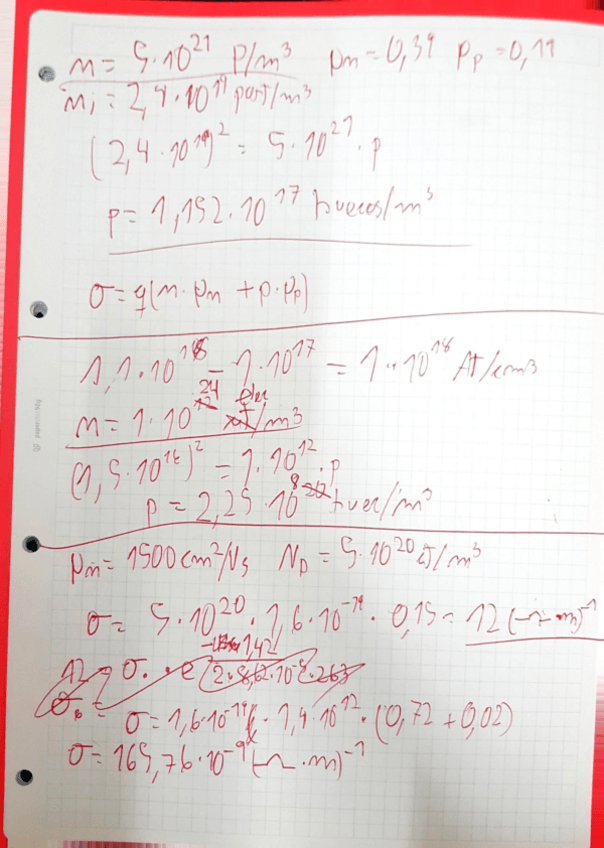 n = 5·10²¹ P/m³   μn = 0,39   μp = 0,19
ni = 2,4·10¹⁹ port/m³
(2,4·10¹⁹)² = 5·10²¹·p
p = 1,152·10¹⁷ huecos/m³
σ = q(n·μn + p·μp)
1,1·10¹⁸ - 1·10¹⁷ = 1·10¹⁸ At/cm³
n = 1·10²⁴ elec/m³
(1,5·10¹⁶)² = 1·10¹²·p
p = 2,25·10⁸ huec/m³
μn = 1500 cm²/Vs   ND = 5·10²⁰ at/m³
σ = 5·10²⁰·1,6·10⁻¹⁹·0,15 = 12 (Ω·m)⁻¹
1,42
12 = σ₀·e (2·8,62·10⁻⁵·263
σ₀ =   σ = 1,6·10⁻¹⁹·1,4·10¹²·(0,72 + 0,02)
σ = 165,76·10⁻⁹ (Ω·m)⁻¹